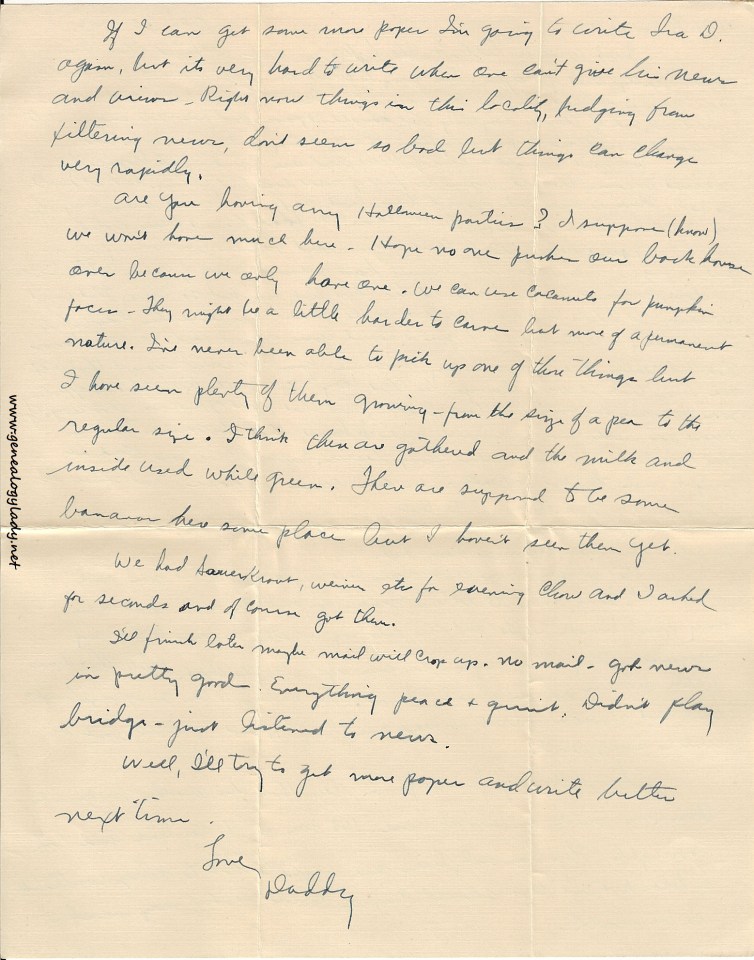 If I can get some more paper I'm going to write Ira D.
again, but its very hard to write when one can't give his news
and views - Right now things in this locality, judging from
filtering news, don't seem so bad but things can change
very rapidly.
Are you having any Halloween parties? I suppose (know)
we won't have much here - Hope no one pushes our back house
over because we only have one. We can use cocoanuts for pumpkin
faces - They might be a little harder to carve but more of a permanent
nature. I've never been able to pick up one of these things but
I have seen plenty of them growing - from the size of a pea to the
regular size. I think these are gathered and the milk and
inside used while green. There are supposed to be some
bananas here some place but I haven't seen them yet.
We had Sauerkraut, weiners etc for evening chow and I asked
for seconds and of course got them.
I'll finish later maybe mail will crop up. No mail - got news
in pretty good. Everything peace + quiet. Didn't play
bridge - just listened to news.
Well, I'll try to get more paper and write better
next time.
Love
Daddy
www.genealogylady.net